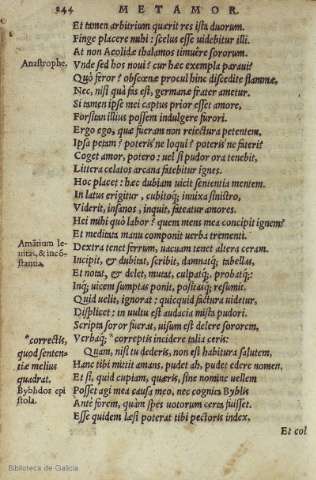 344 METAMOR.
Et tamen arbitrium quærit res ista duorum.
Finge placere mihi: scelus esse uidebitur illi.
At non Aeolidæ thalamos timuêre sororum.
Anastrophe. Vnde sed hos noui? cur hæc exempla paraui?
Quò feror? obscœnæ procul hinc discedite flammæ,
Nec, nisi quà fas est, germanæ frater ametur.
Si tamen ipse mei captus prior esset amore,
Forsitan illius possem indulgere furori.
Ergo ego, quæ fueram non reiectura petentem,
Ipsa petam? poteris'ne loqui? poteris'ne fateri?
Coget amor, potero: uel si pudor ora tenebit,
Littera celatos arcana fatebitur ignes.
Hoc placet: hæc dubiam uicit sententia mentem.
In latus erigitur, cubitoq; innixa sinistro,
Viderit, insanos, inquit, fateamur amores.
Hei mihi quò labor? quem mens mea concipit ignem?
Et meditata manu componit uerba trementi.
Amātium le- Dextra tenet ferrum, uacuam tenet altera ceram.
uitas, & incō- Incipit, & dubitat, scribit, damnatq́; tabellas,
stantia. Et notat, & delet, mutat, culpatq́; probatq́;:
Inq́; uicem sumptas ponit, positasq́; resumit.
Quid uelit, ignorat: quicquid factura uidetur,
Displicet: in uultu est audacia mista pudori.
Scripta soror fuerat, uisum est delere sororem,
*correctis, Verbaq́; *correptis incidere talia ceris:
quod senten- Quam, nisi tu dederis, non est habitura salutem,
tiæ melius Hanc tibi mittit amans. pudet ah, pudet edere nomen.
quadrat. Et si, quid cupiam, quæris, sine nomine uellem
Byblidos epi Posset agi mea causa meo, nec cognita Byblis
stola. Antè forem, quàm spes uotorum certa fuisset.
Esse quidem læsi poterat tibi pectoris index.
Et col
Biblioteca de Galicia